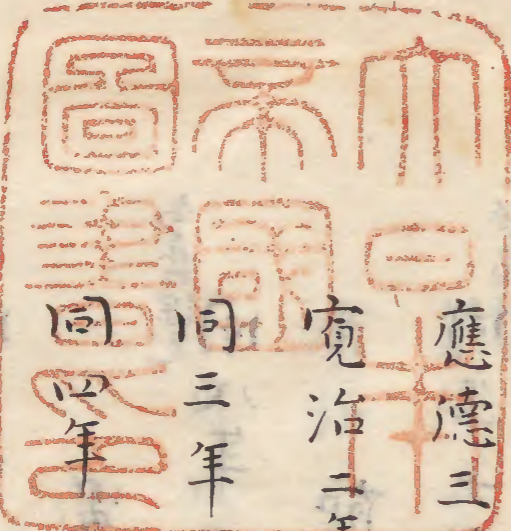 大日本
帝國
圖書之印
應德三
寛治二年
同三年
同四年